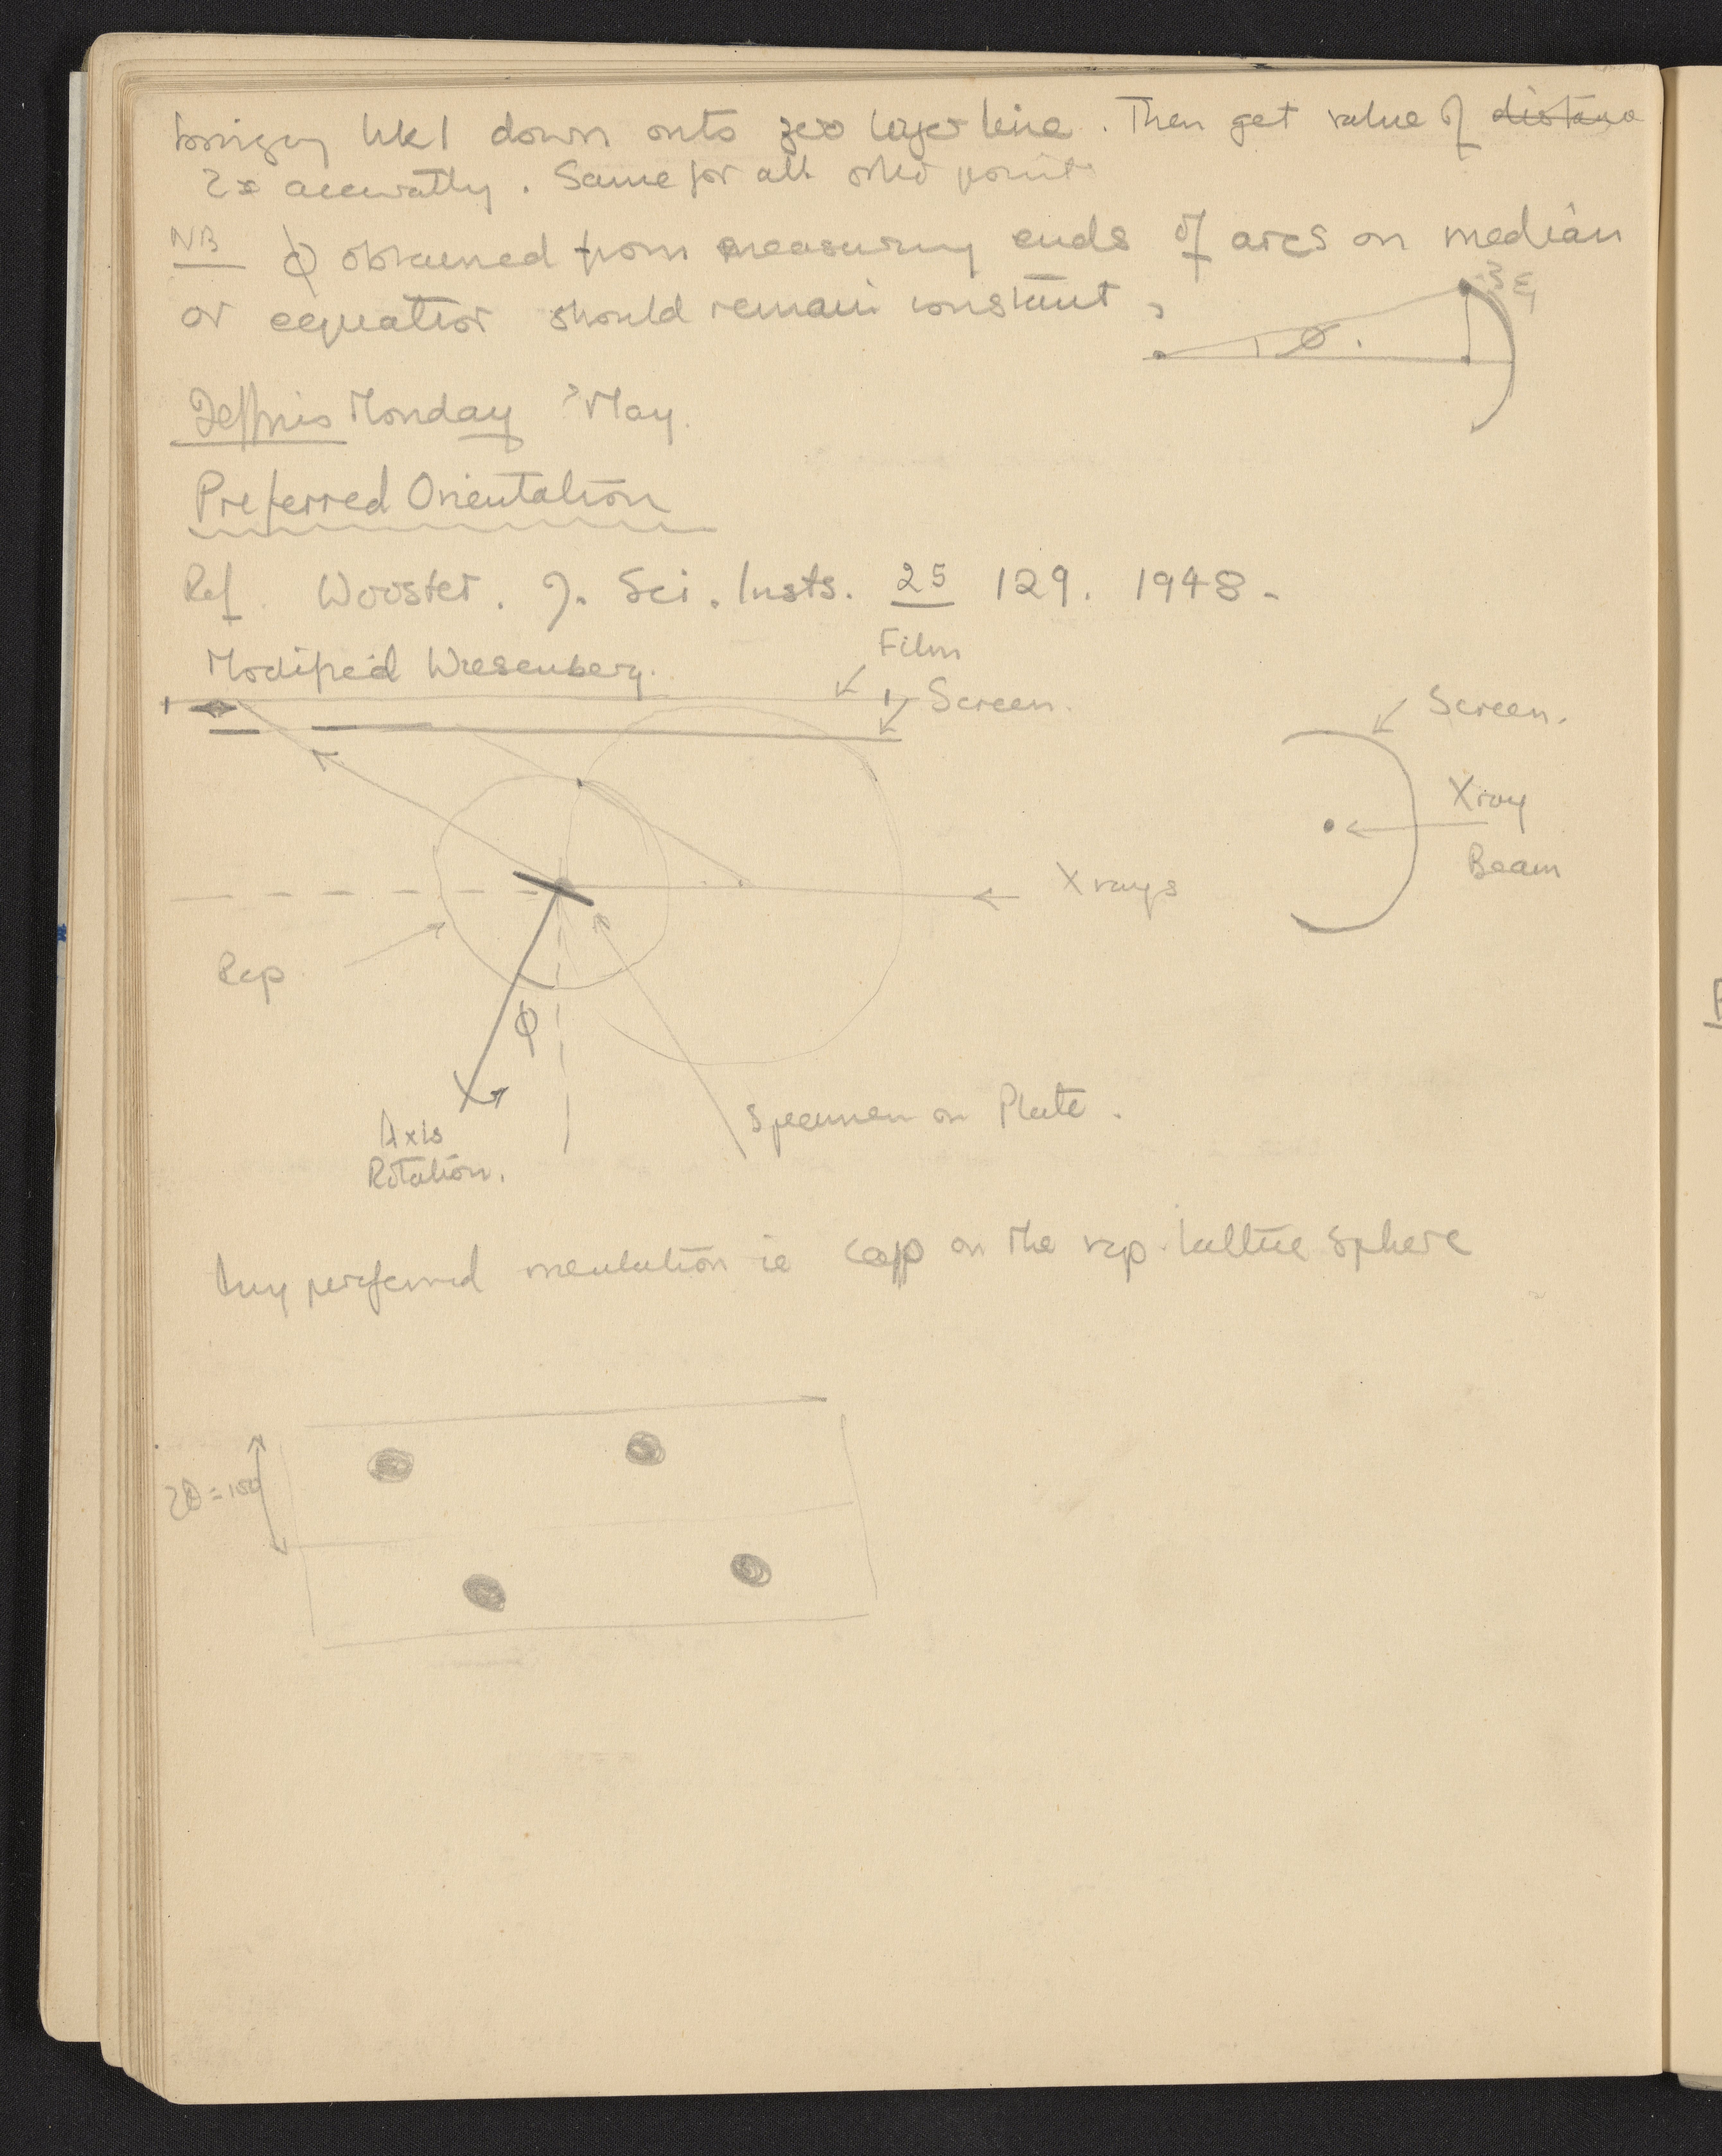 hkl down onto zero layer line. Then get value of distance
accuratly. Same for all other points
NB ϕ obtained from measuring ends of arcs on median
or equatior should remain constant,
ϕ.
Monday May.
Preferred Orientation
Ref. Wooster. J. Sci. Insts. 25 129. 1948.
Film
Modified Wiesenberg.
Screen.
Screen.
Xray
Beam
X rays
Rep
ϕ
Axis
Rotation.
Specimen on Plate.
Any preferred orientation is cap on the rep. lattice sphere
2θ =